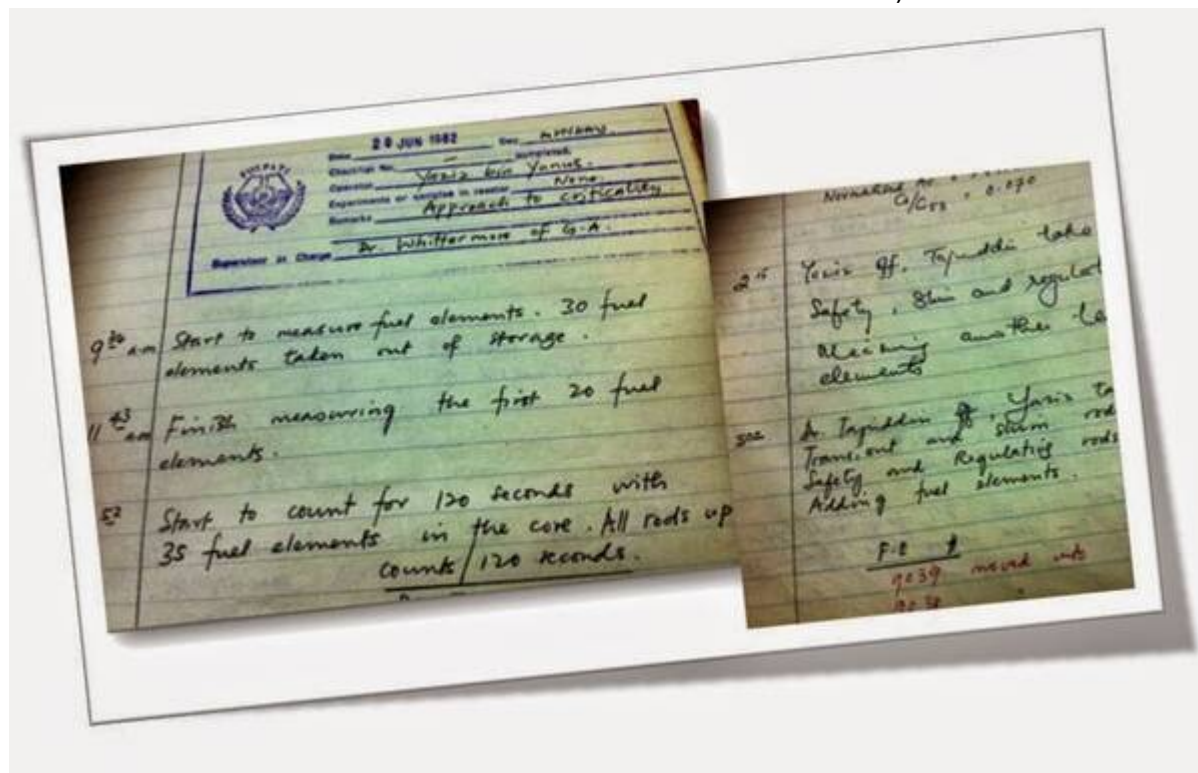 Date 28 JUN 1982 Day
Checklist No. –
Operator Yaziz bin Yunus.
Experiments or samples in reactor None.
Remarks Approach to criticality.
Supervisor in Charge Dr. Whittermore of G.A.
9 30 am Start to measure fuel elements. 30 fuel
elements taken out of storage.
11 43 am Finish measuring the first 20 fuel
elements.
5 52 Start to count for 120 seconds with
35 fuel elements in the core. All rods up
counts/120 seconds.
: 0.090
2 15 Yaziz & Tajuddin take
Safety, Shim and regulat
another
elements
5 02 Dr. Tajuddin & Yaziz
Transient and Shim rod
Safety and Regulating rods
Adding fuel elements.
F.E #
9039 moved into